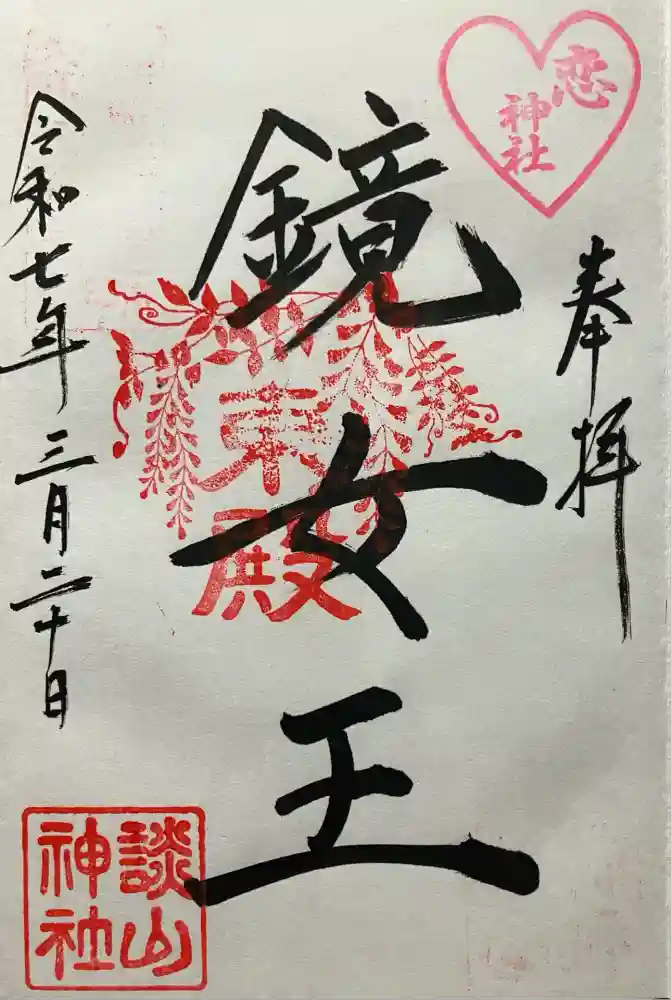 恋
神社
奉拝
鏡女王
東殿
令和七年三月二十日
談山
神社